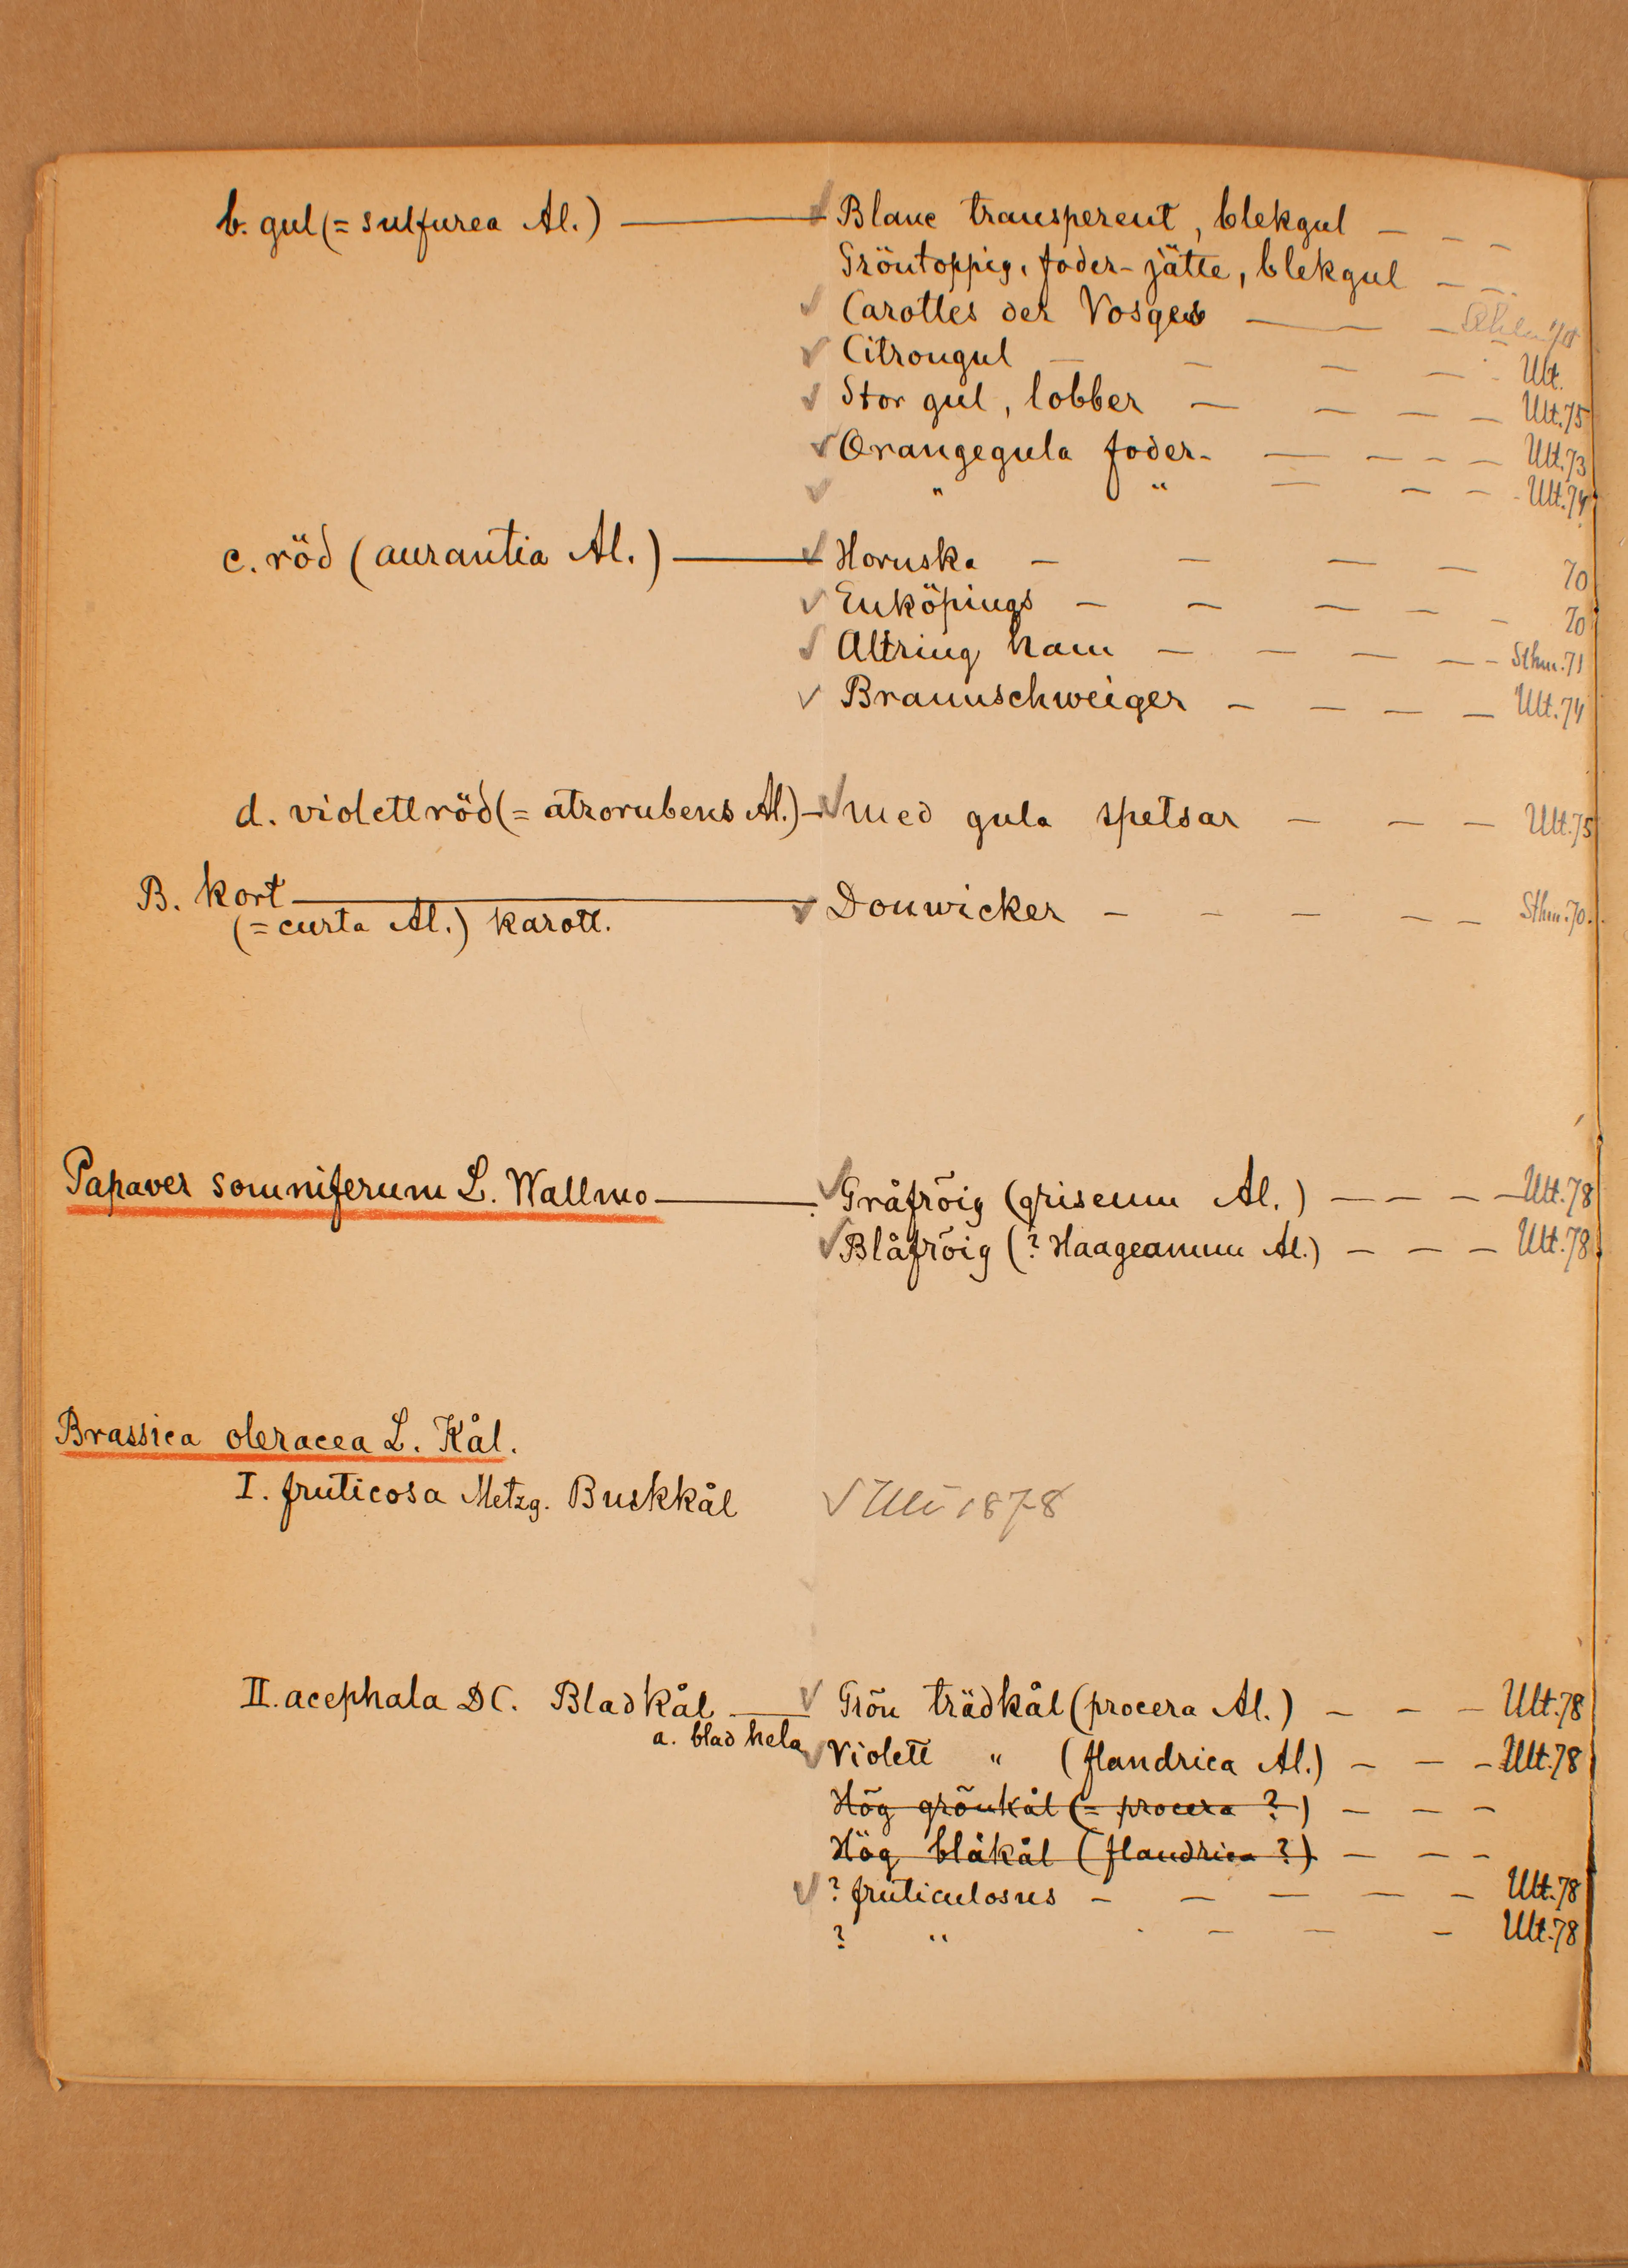 b. gul (= sulfurea Al.) — ✓ Blanc transperent, blekgul - - -
Gröntoppig, foder-jätte, blekgul - -
✓ Carottes der Vosges — — -
✓ Citrongul - - - - - Ult.
✓ Stor gul, lobber - - - - Ult. 75
✓ Orangegula foder- - - - - Ult. 73
✓ " " = - - - Ult. 74
c. röd (aurantia Al.) — ✓ Hornska - - - - 70
✓ Enköpings - - - - - 70
✓ Altringham - - - - - Sthm. 71
✓ Braunschweiger - - - - Ult. 74
d. violettröd (= atrorubens Al.) - ✓ med gula spetsar - - - Ult. 75
B. kort — ✓ Donwicker - - - - - Sthm. 70.
(= curta Al.) karott.
Papaver somniferum L. Wallmo — ✓ Gråfröig (griseum Al.) - - - - Ult. 78
✓ Blåfröig (? Haageanum Al.) - - - Ult. 78
Brassica oleracea L. Kål.
I. fruticosa Metzg. Buskkål ✓ Ult 1878
II. acephala DC. Bladkål — ✓ Grön trädkål (procera Al.) - - - Ult. 78
a. blad hela ✓ Violett " (flandrica Al.) - - - Ult. 78
Hög grönkål (= procera ?) - - -
Hög blåkål (flandrica ?) - - -
✓ ? fruticulosus - - - - - Ult. 78
? " - - - Ult. 78